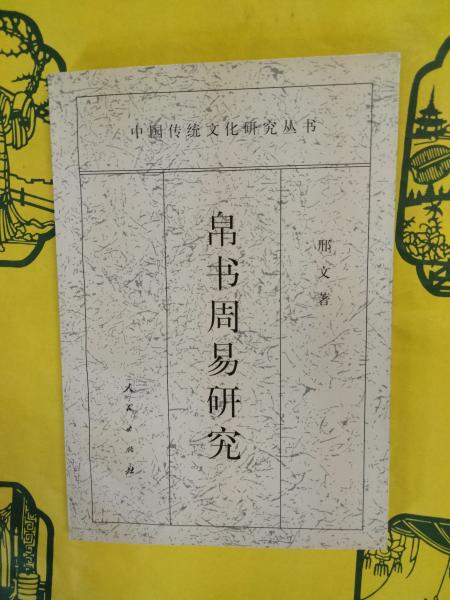 中国传统文化研究丛书
帛书周易研究
邢文著
人民出版社